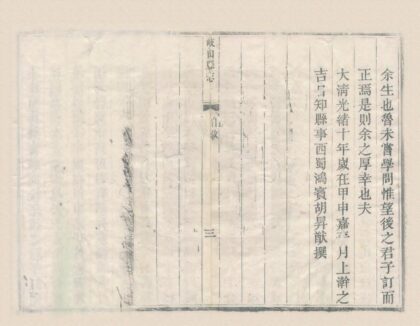 余生也魯未嘗學問惟望後之君子訂而
正焉是則余之厚幸也夫
大清光緒十年歲在甲申嘉平月上澣之
吉知縣事西蜀鴻賓胡昇猷撰
岐山縣志
三